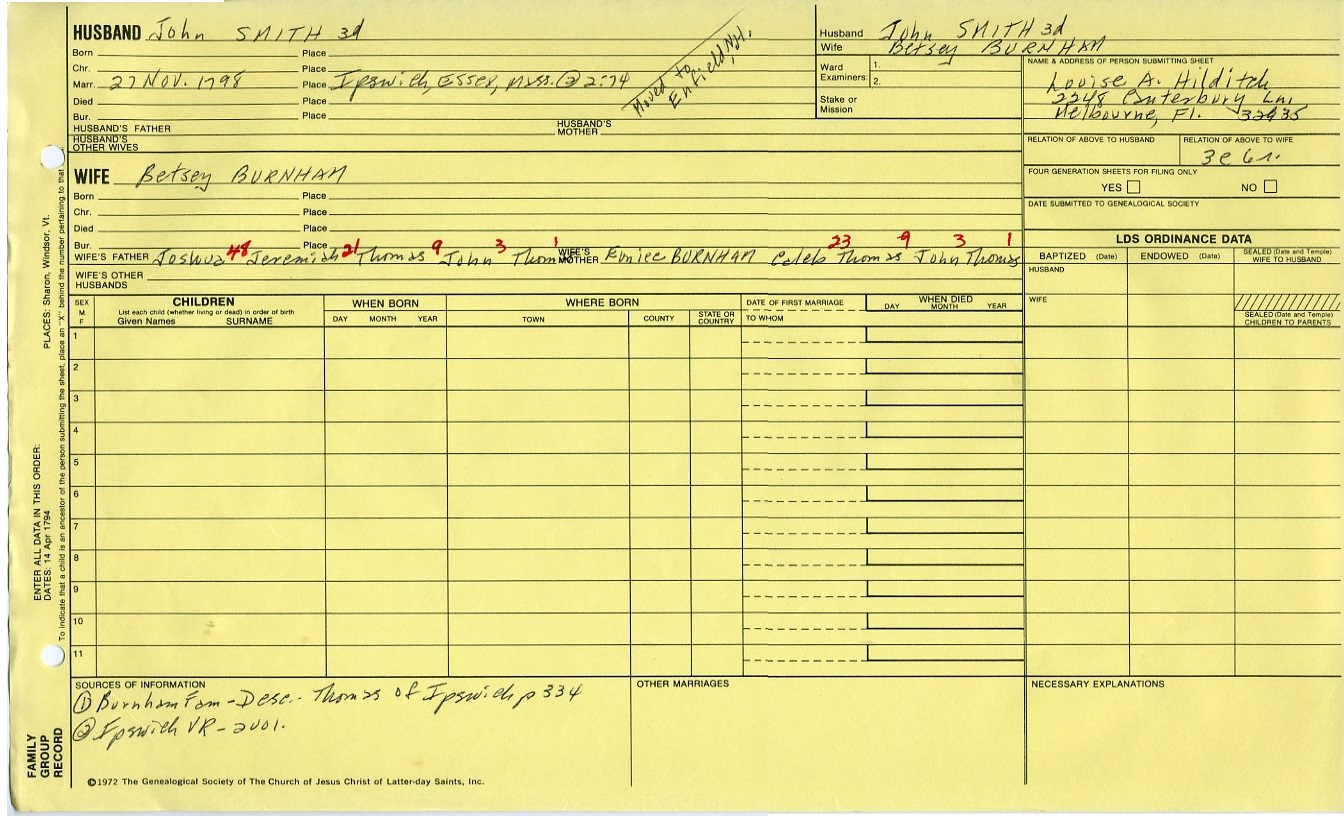 HUSBAND John SMITH 3d
Born Place
Chr. Place
Marr. 27 NOV. 1798 Place Ipswich, Essex, Mass. ② 2:74
Died Place
Bur. Place
Moved to
Enfield, N.H.
HUSBAND'S FATHER HUSBAND'S MOTHER
HUSBAND'S OTHER WIVES
Husband John SMITH 3d
Wife Betsey BURNHAM
Ward 1.
Examiners: 2.
Stake or
Mission
NAME & ADDRESS OF PERSON SUBMITTING SHEET
Louise A. Hilditch
2248 Canterbury Ln.
Melbourne, Fl. 32935
RELATION OF ABOVE TO HUSBAND RELATION OF ABOVE TO WIFE
3c 6r.
FOUR GENERATION SHEETS FOR FILING ONLY
YES NO
DATE SUBMITTED TO GENEALOGICAL SOCIETY
WIFE Betsey BURNHAM
Born Place
Chr. Place
Died Place
Bur. Place
48 21 9 3 1 23 9 3 1
WIFE'S FATHER Joshua Jeremiah Thomas John Thomas WIFE'S MOTHER Eunice BURNHAM Caleb Thomas John Thomas
WIFE'S OTHER
HUSBANDS
LDS ORDINANCE DATA
BAPTIZED (Date) ENDOWED (Date) SEALED (Date and Temple) WIFE TO HUSBAND
HUSBAND
WIFE
SEALED (Date and Temple) CHILDREN TO PARENTS
SEX M F
CHILDREN
List each child (whether living or dead) in order of birth
Given Names SURNAME
WHEN BORN
DAY MONTH YEAR
WHERE BORN
TOWN COUNTY STATE OR COUNTRY
DATE OF FIRST MARRIAGE
TO WHOM
WHEN DIED
DAY MONTH YEAR
1
2
3
4
5
6
7
8
9
10
11
SOURCES OF INFORMATION
① Burnham Fam - Desc. Thomas of Ipswich p 334
② Ipswich VR - 2001.
OTHER MARRIAGES
NECESSARY EXPLANATIONS
©1972 The Genealogical Society of The Church of Jesus Christ of Latter-day Saints, Inc.
FAMILY
GROUP
RECORD
ENTER ALL DATA IN THIS ORDER:
DATES: 14 Apr 1794 PLACES: Sharon, Windsor, Vt.
To indicate that a child is an ancestor of the person submitting the sheet, place an "X" behind the number pertaining to that